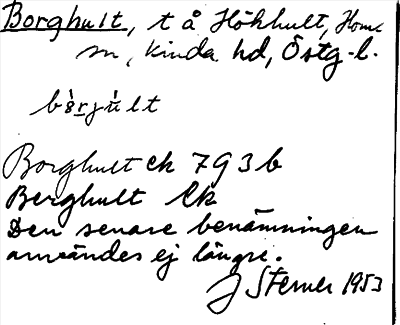 Borghult, t å Hökhult, Horns
sn, Kinda hd, Östg. l.
bòrjúlt
Borghult ek 7 G 3 b
Berghult Ek
Den senare benämningen
användes ej längre.
J Sterner 1953